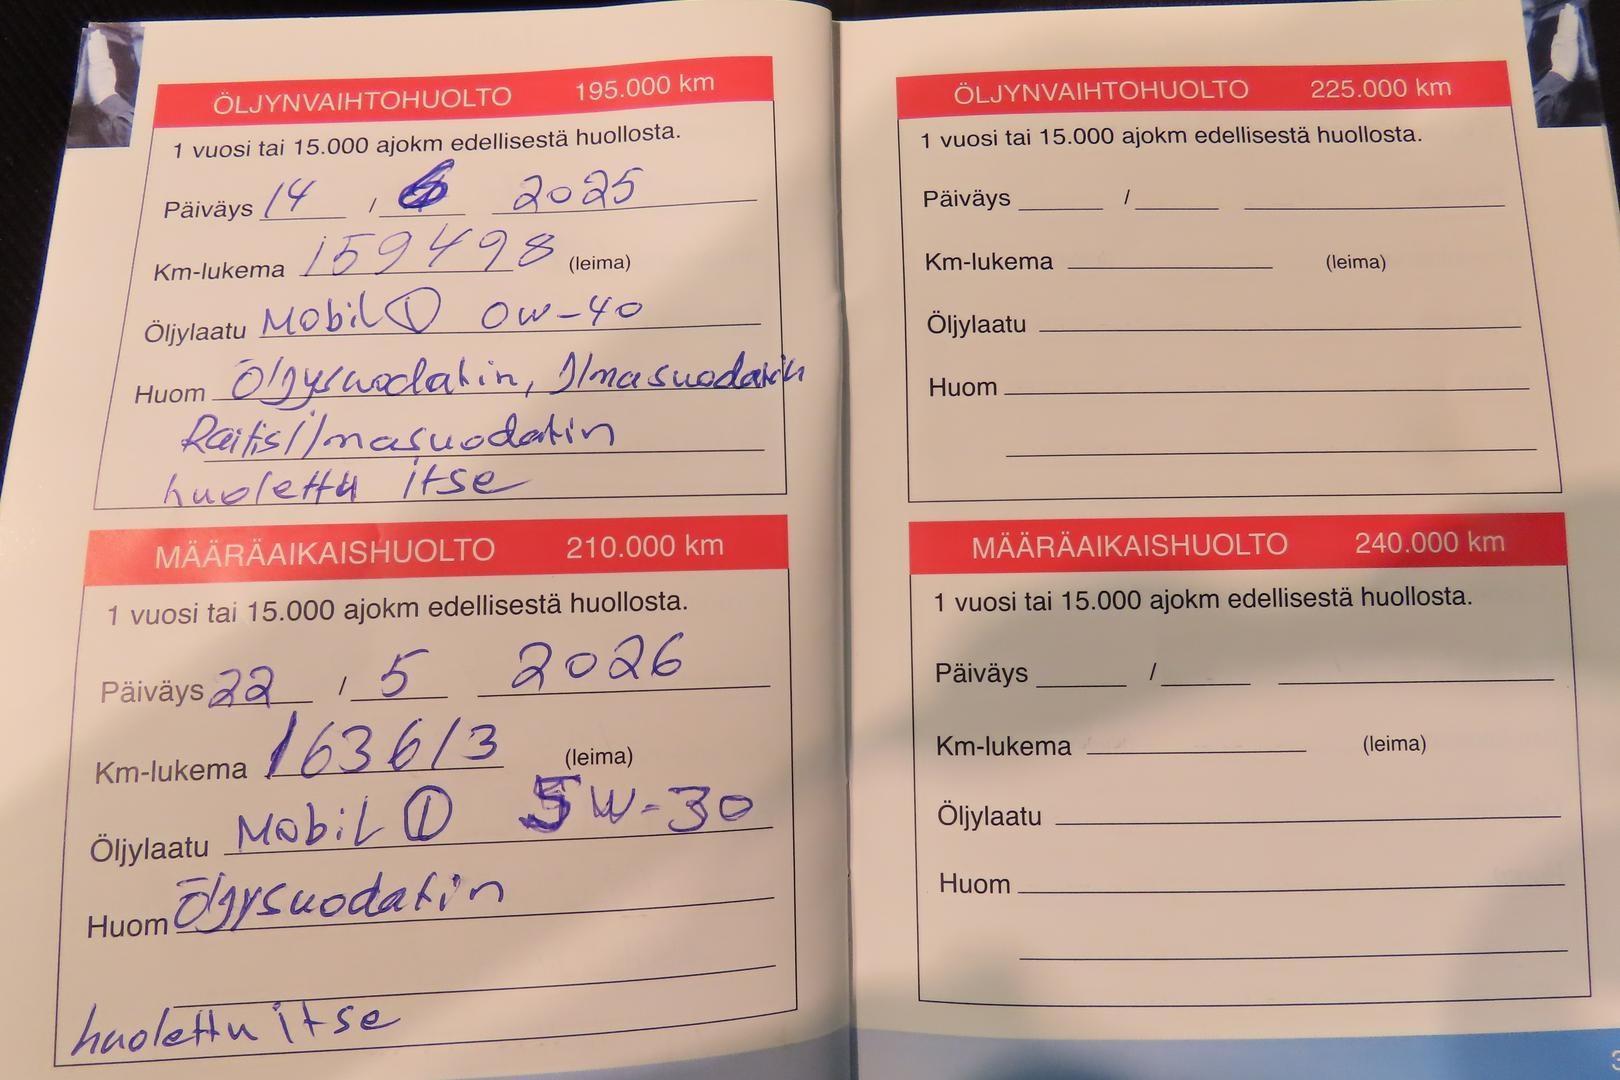 ÖLJYNVAIHTOHUOLTO 195.000 km
1 vuosi tai 15.000 ajokm edellisestä huollosta.
Päiväys 14 / 6 2025
Km-lukema 159498 (leima)
Öljylaatu Mobil 1 0W-40
Huom Öljysuodatin, Ilmasuodatin
Raitisilmasuodatin
huolettu itse
MÄÄRÄAIKAISHUOLTO 210.000 km
1 vuosi tai 15.000 ajokm edellisestä huollosta.
Päiväys 22 / 5 2026
Km-lukema 163613 (leima)
Öljylaatu Mobil 1 5W-30
Huom Öljysuodatin
huolettu itse
ÖLJYNVAIHTOHUOLTO 225.000 km
1 vuosi tai 15.000 ajokm edellisestä huollosta.
Päiväys /
Km-lukema (leima)
Öljylaatu
Huom
MÄÄRÄAIKAISHUOLTO 240.000 km
1 vuosi tai 15.000 ajokm edellisestä huollosta.
Päiväys /
Km-lukema (leima)
Öljylaatu
Huom